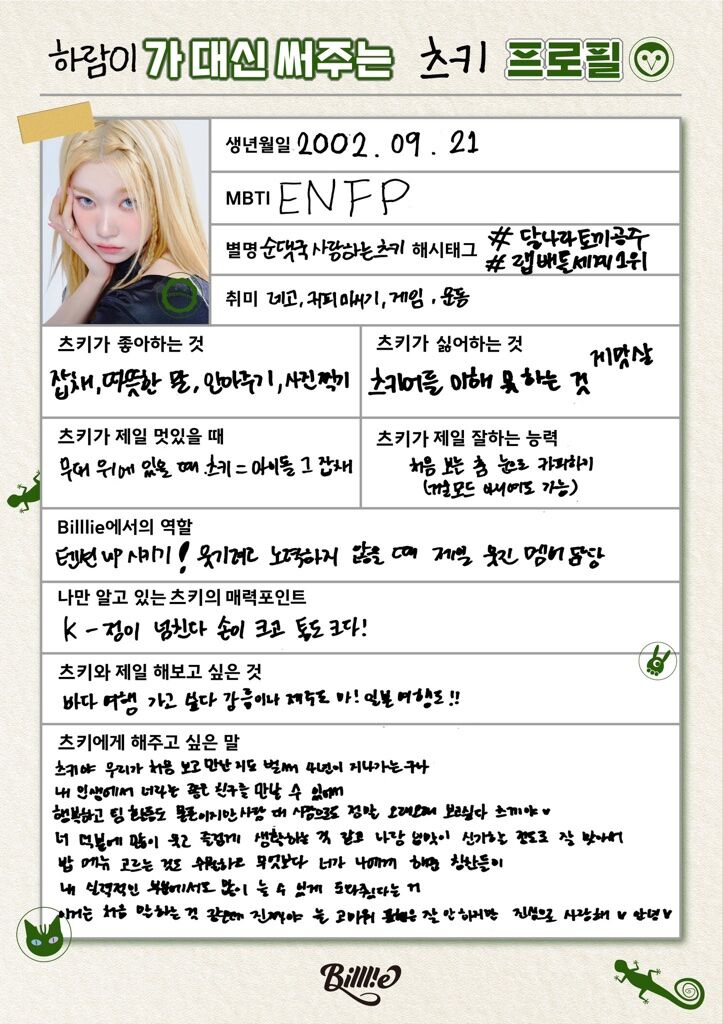 하람이가 대신 써주는 츠키 프로필
생년월일 2002. 09. 21
MBTI ENFP
별명 순댓국 사랑하는 츠키 해시태그 #달나라토끼공주
#랩배틀세계1위
취미 네고, 커피마시기, 게임, 운동
츠키가 좋아하는 것
잡채, 따뜻한 말, 안아주기, 사진찍기
츠키가 싫어하는 것
츠키어를 이해 못 하는 것 게맛살
츠키가 제일 멋있을 때
무대 위에 있을 때 츠키 = 아이돌 그 잡채
츠키가 제일 잘하는 능력
처음 보는 춤 눈으로 카피하기
(거울모드 아니어도 가능)
Billlie에서의 역할
텐션 UP 시키기! 웃기려고 노력하지 않을 때 제일 웃긴 멤버 담당
나만 알고 있는 츠키의 매력포인트
K-정이 넘친다 손이 크고 통도 크다!
츠키와 제일 해보고 싶은 것
바다 여행 가고 싶다 강릉이나 제주도 아! 일본 여행도!!
츠키에게 해주고 싶은 말
츠키야 우리가 처음 보고 만난지도 벌써 4년이 지나가는구나
내 인생에서 너라는 좋은 친구를 만날 수 있어서
행복하고 팀 활동도 물론이지만 사람 대 사람으로 정말 오래오래 보고싶다 츠키야 ♥
너 덕분에 많이 웃고 즐겁게 생활하는 것 같고 나랑 입맛이 신기할 정도로 잘 맞아서
밥 메뉴 고르는 것도 수월하고 무엇보다 너가 나에게 해준 칭찬들이
내 실력적인 부분에서도 많이 늘 수 있게 도와줬다는 거
이거는 처음 말하는 것 같은데 진짜야 늘 고마워 표현은 잘 안하지만 진심으로 사랑해 ♥ 안녕 ♥
Billlie